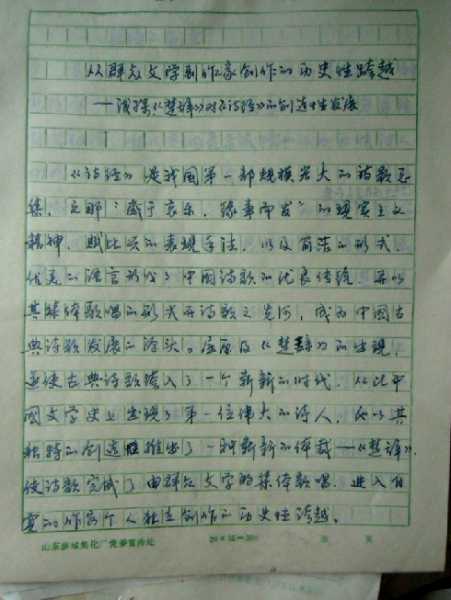 从群众文学到作家创作的历史性跨越
——试探《楚辞》对《诗经》的创造性发展
《诗经》是我国第一部规模宏大的诗歌总
集，它那“感于哀乐，缘事而发”的现实主义
精神，赋比兴的表现手法，以及简洁的形式、
优美的语言形成了中国诗歌的优良传统，并以
其集体歌唱的形式开诗歌之先河，成为中国古
典诗歌发展的源头。屈原及《楚辞》的出现，
遂使古典诗歌跨入了一个崭新的时代，从此中
国文学史上出现了第一位伟大的诗人，他以其
独特的创造推出了一种崭新的体裁——《楚辞》，
使诗歌完成了由群众文学的集体歌唱，进入自
觉的作家个人独立创作的历史性跨越。
山东 焦化厂党委宣传处 20×15=300 第 页